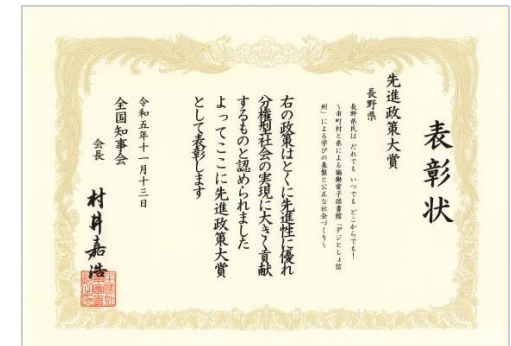 表彰状
先進政策大賞
長野県
長野県民は だれでも いつでも どこからでも!
~市町村と県による協働電子図書館「デジとしょ信
州」による学びの基盤と公正な社会づくり~
右の政策はとくに先進性に優れ
分権型社会の実現に大きく貢献
するものと認められました
よってここに先進政策大賞
として表彰します
令和五年十一月十三日
全国知事会
会長
村井嘉浩